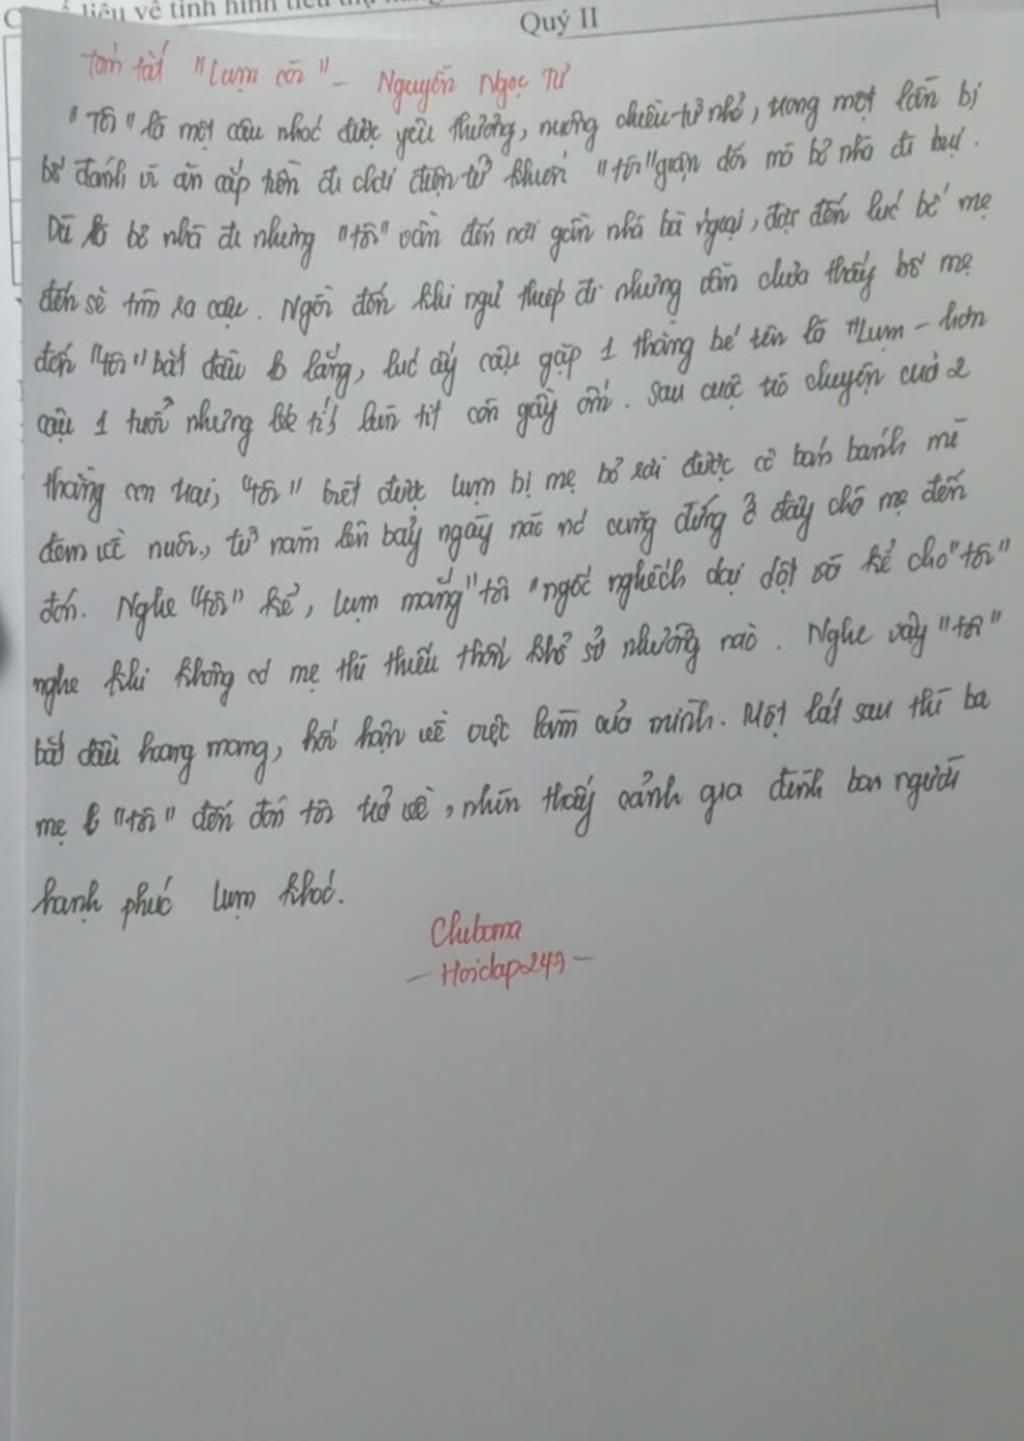 liệu về tình hình tiêu thụ
Quý II
Tóm tắt "Lụm còi" - Nguyễn Ngọc Tư
"Tôi" là một cậu nhóc được yêu thương, nuông chiều từ nhỏ, trong một lần bị
bố đánh vì ăn cắp tiền đi chơi điện tử khiến "tôi" giận dỗi mà bỏ nhà đi bụi.
Dù là bỏ nhà đi nhưng "tôi" vẫn đến nơi gần nhà bà ngoại, đợi đến lúc bố mẹ
đến sẽ tìm ra cậu. Ngồi đến khi ngủ thiếp đi nhưng vẫn chưa thấy bố mẹ
đến "tôi" bắt đầu lo lắng, lúc ấy cậu gặp 1 thằng bé tên là "Lụm - hơn
cậu 1 tuổi nhưng lùn tịt còn gầy ốm. Sau cuộc trò chuyện của 2
thằng con trai, "tôi" biết được Lụm bị mẹ bỏ rơi được cô bán bánh mì
đem về nuôi, từ năm lên bảy ngày nào nó cũng đứng ở đây chờ mẹ đến
đón. Nghe "tôi" kể, Lụm mắng "tôi" ngốc nghếch dại dột rồi kể cho "tôi"
nghe khi không có mẹ thì thiếu thốn khổ sở nhường nào. Nghe vậy "tôi"
bắt đầu hoang mang, hối hận về việc làm của mình. Một lát sau thì ba
mẹ "tôi" đến đón tôi trở về, nhìn thấy cảnh gia đình ba người
hạnh phúc Lụm khóc.
Chuboma
- Hoidap247 -